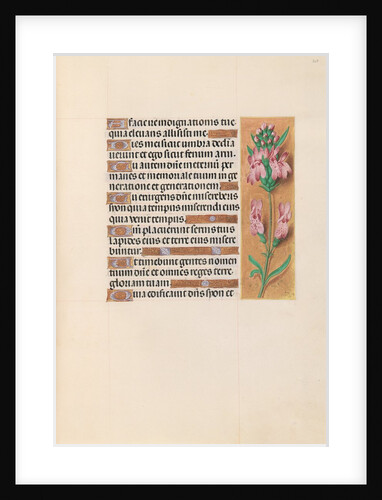 A facie ire indignationis tue
quia elevans allisisti me
Dies mei sicut umbra decli
nerunt et ego sicut fenum arui
Tu autem dñe in eternũ per
manes et memoriale tuum in ge
neratione et generationem
Tu exurgens dñe misereberis
syon quia tempus miserendi eius
quia venit tempus
Qm placuerunt servis tuis
lapides eius et terre eius misere
buntur
Et timebunt gentes nomen
tuum dñe et omnes reges terre
gloriam tuam
Quia edificavit dñs syon et